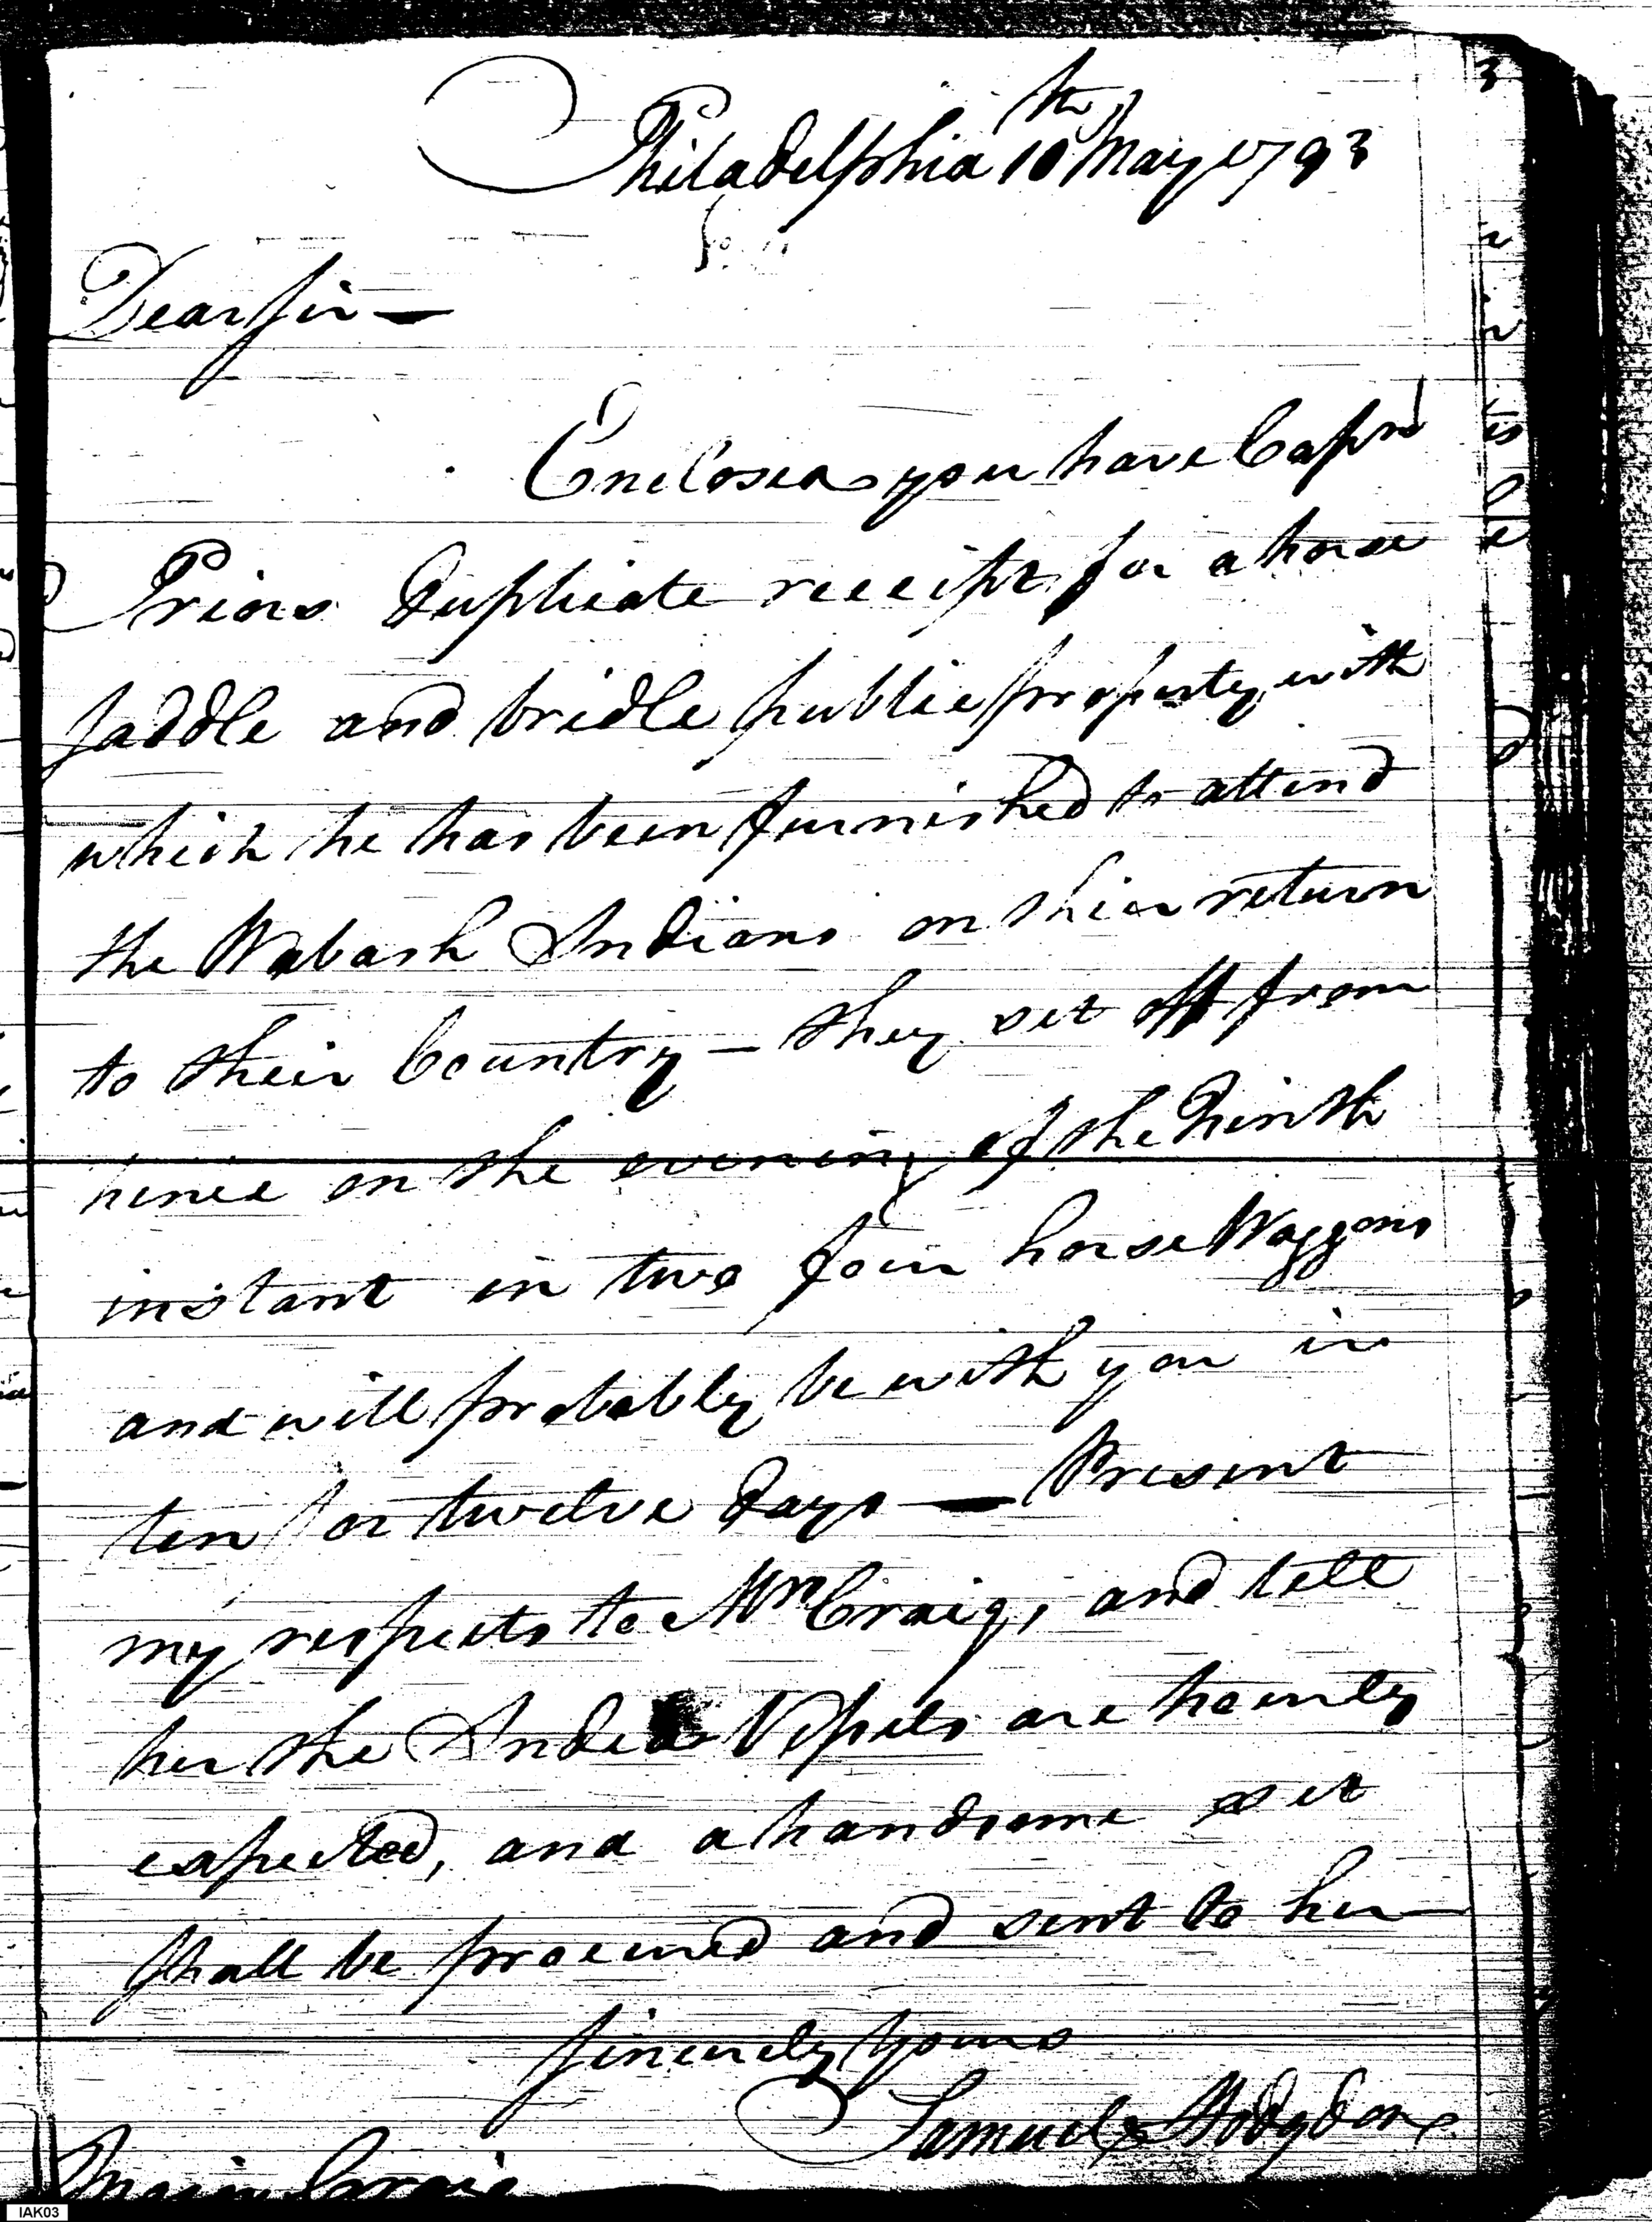 Philadelphia 10th May 1793
Dear Sir —
Enclosed you have Capn
Priors Duplicate receipt for a horse
Saddle and bridle public property with
which he has been furnished to attend
the Wabash Indians on their return
to their Country — they set off from
hence on the evening of the Ninth
instant in two four horse Waggons
and will probably be with you in
ten or twelve days — Present
my respects to Mrs Craig, and tell
her the India Vessels are hourly
expected, and a handsome set
shall be procured and sent to her
Sincerely Yours
Samuel Hodgdon
Major Craig
IAK03